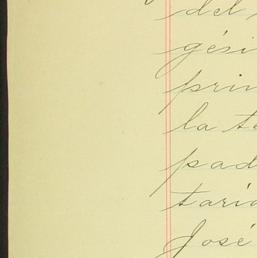 del
gési
prin
la te
pad
taria
José